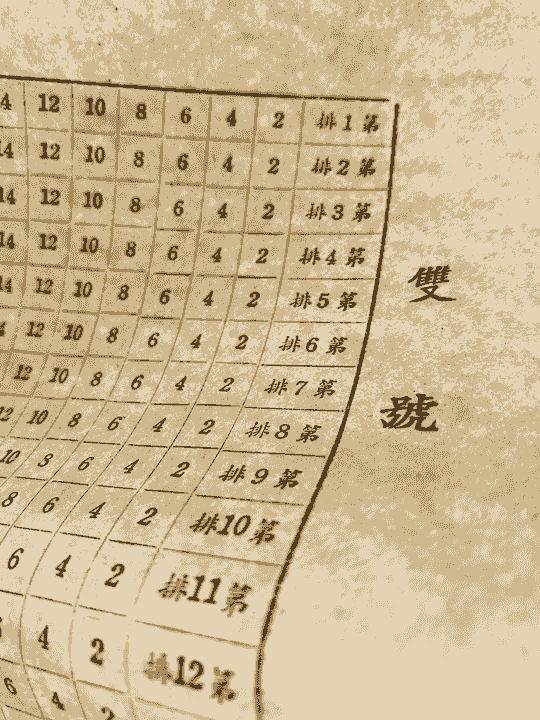 4 12 10 8 6 4 2 排1第
14 12 10 8 6 4 2 排2第
14 12 10 8 6 4 2 排3第
14 12 10 8 6 4 2 排4第
14 12 10 8 6 4 2 排5第
4 12 10 8 6 4 2 排6第
12 10 8 6 4 2 排7第
12 10 8 6 4 2 排8第
10 8 6 4 2 排9第
8 6 4 2 排10第
6 4 2 排11第
4 2 排12第
6 4 2
雙號